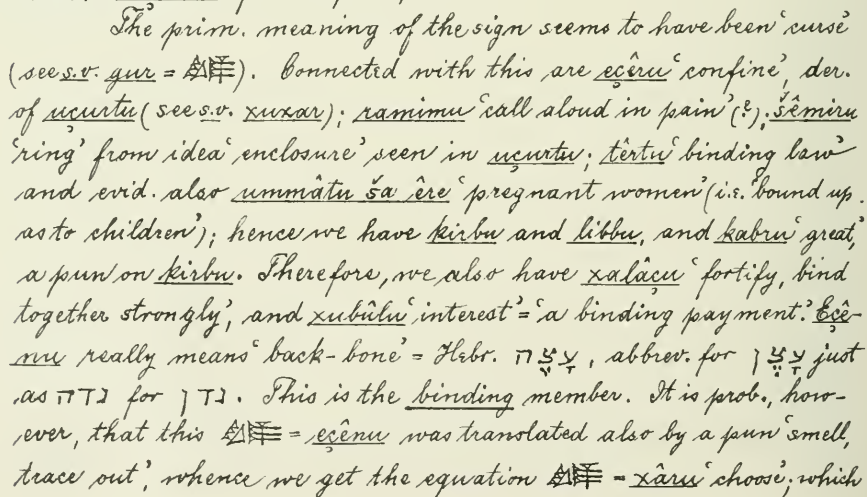 The prim. meaning of the sign seems to have been 'curse'
(see s.v. gur = ). Connected with this are eçêru 'confine', der.
of uçurtu (see s.v. xuxar); ramimu 'call aloud in pain' (?); šêmiru
'ring' from idea 'enclosure' seen in uçurtu; têrtu 'binding law'
and evid. also ummâtu ša êre 'pregnant women' (i.e. 'bound up
as to children'); hence we have kirbu and libbu, and kabru 'great,'
a pun on kirbu. Therefore, we also have xalâçu 'fortify, bind
together strongly', and xubûlu 'interest' = 'a binding payment.' Eçê-
nu really means 'back-bone' = Hebr. עָצֶה, abbrev. for עָצֶן just
as נדה for נדן. This is the binding member. It is prob., how-
ever, that this = eçênu was translated also by a pun 'smell,
trace out', whence we get the equation = xâru 'choose', which